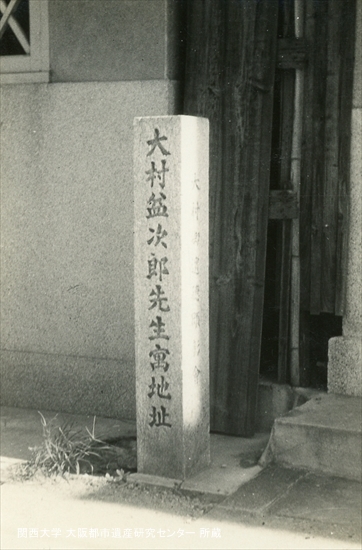 大村益次郎先生寓地址
関西大学 大阪都市遺産研究センター 所蔵